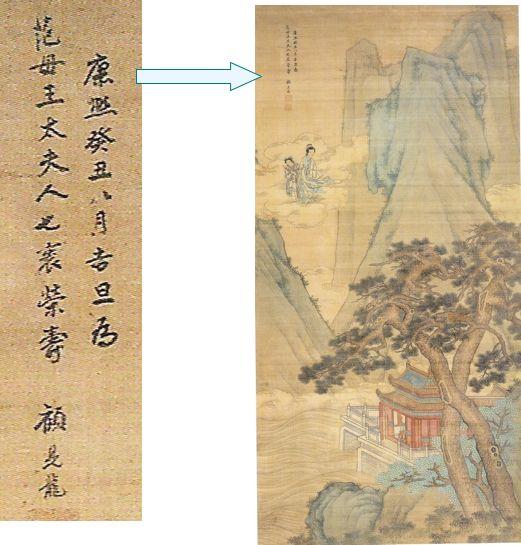 康熙癸丑八月吉旦為
范母王太夫人七袠榮壽 顧見龍